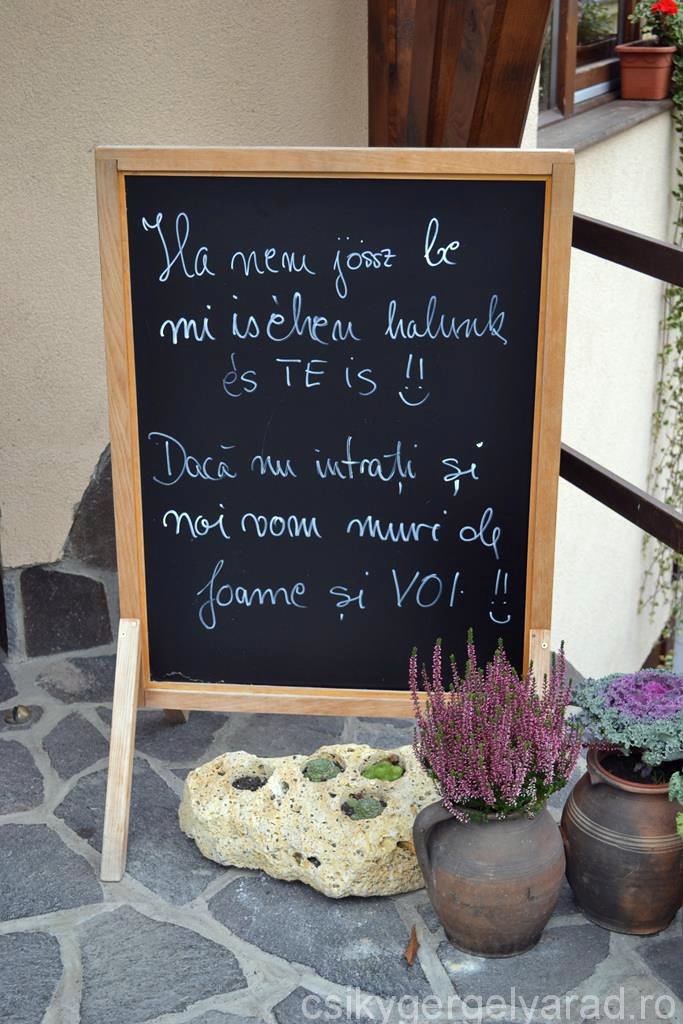 Ha nem jössz be
mi is éhen halunk
és TE is !!
Dacă nu intrați și
noi vom muri de
foame și VOI. !!
csikygergelyarad.ro